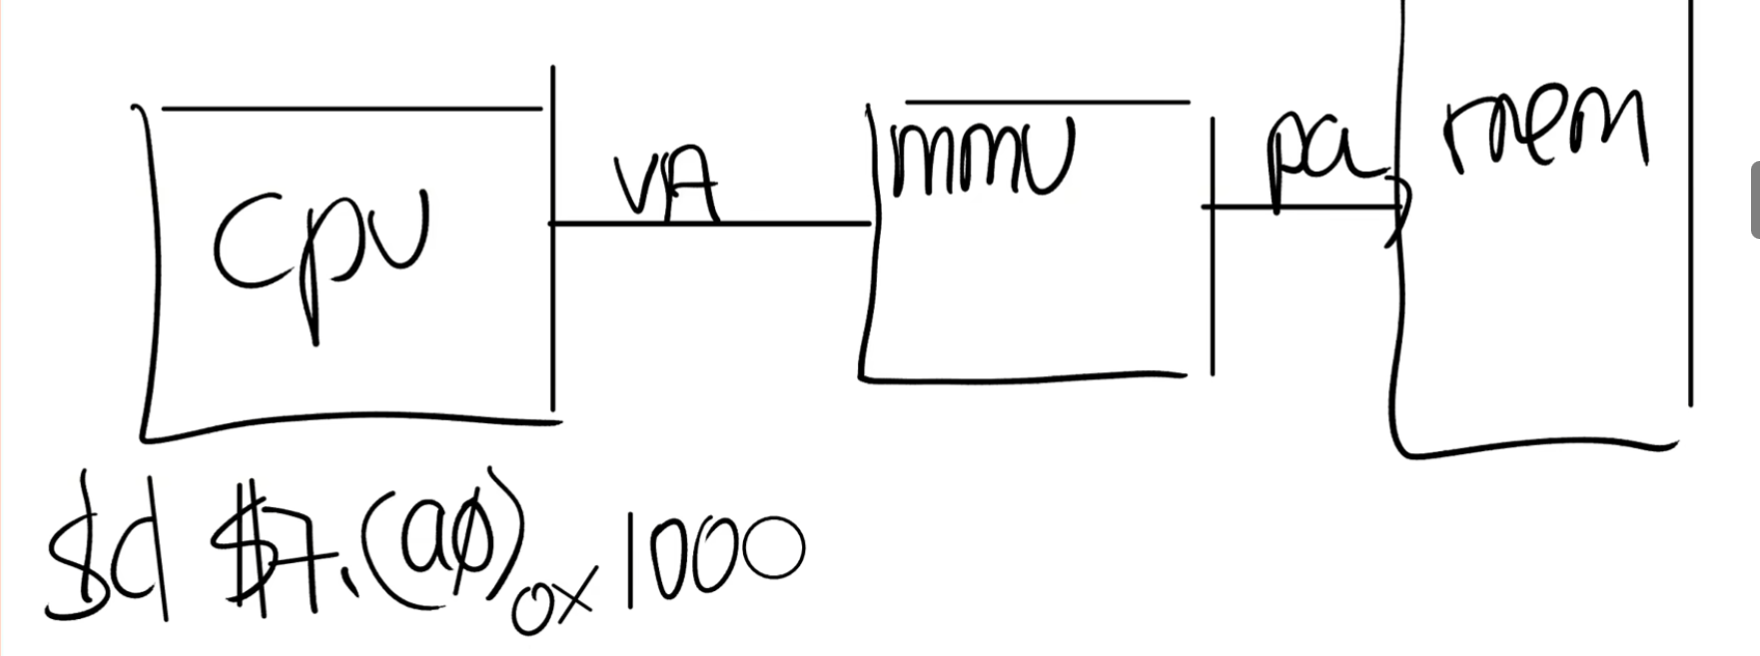 cpu
VA
mmu
pa
mem
sd $7, (a0) 0x1000